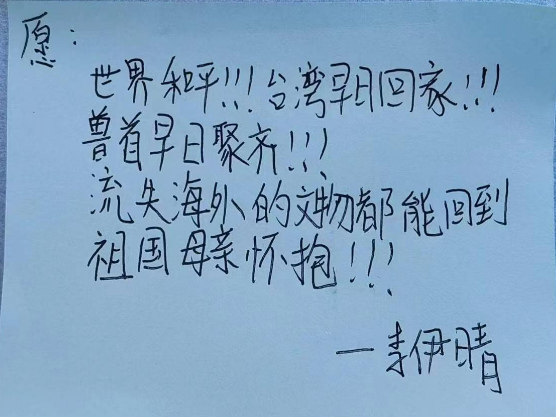 愿：
世界和平!!!台湾早日回家!!!
兽首早日聚齐!!!
流失海外的文物都能回到
祖国母亲怀抱!!!
—李伊晴